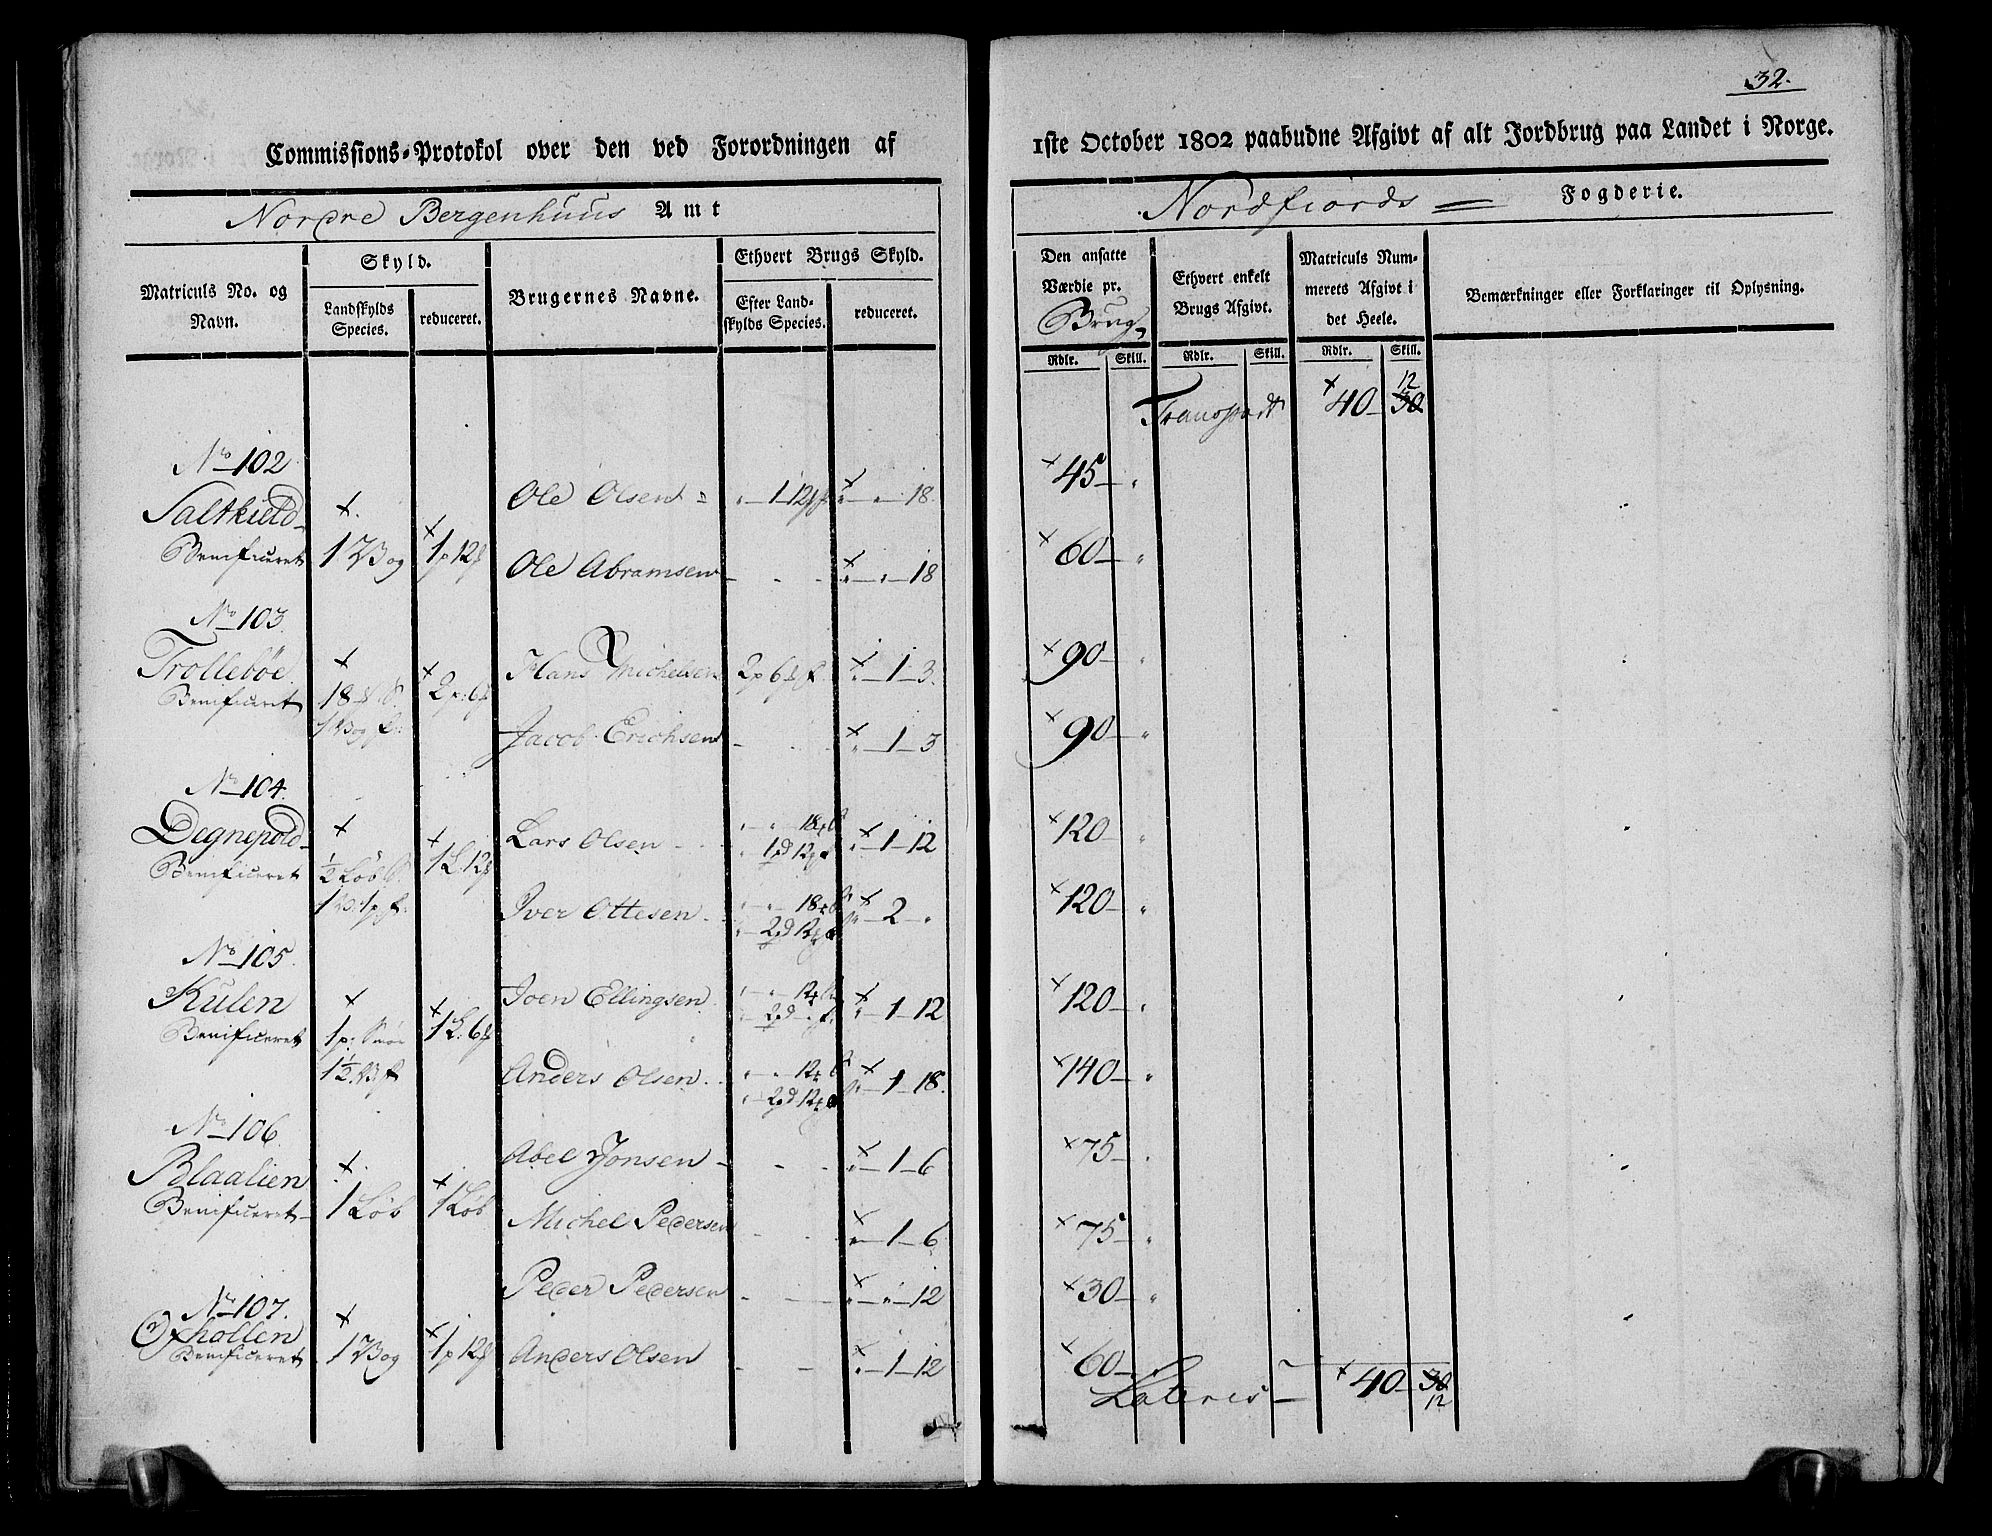 32.
Commissions-Protokol over den ved Forordningen af
1ste October 1802 paabudne Afgivt af alt Jordbrug paa Landet i Norge.
Nordre Bergenhuus Amt
Nordfiords Fogderie.
Matriculs No. og Navn.
Skyld.
Landskylds Species.
reduceret.
Brugernes Navne.
Ethvert Brugs Skyld.
Efter Landskylds Species.
reduceret.
Den ansatte Værdie pr. Brug
Ethvert enkelt Brugs Afgivt.
Matriculs Nummerets Afgivt i det Heele.
Bemærkninger eller Forklaringer til Oplysning.
Rdlr. Skill. Rdlr. Skill. Rdlr. Skill.
Transportt 40 12
30
No 102
Saltkield
Benificeret
1 Vog
1 p 12
Ole Olsen
1 12
18
45
Ole Abramsen
18
60
No 103
Trollebøe
Benificeret
18
1 Vog f:
2 p: 6
Hans Michelsen 2 p 6 1 3
90
Jacob Erichsen 1 3
90
No 104
Degnepold
Benificeret
1/2 Løb S.
1 V: 1 p f.
1 L 12
Lars Olsen 18
1 pd 12
1 12
120
Iver Ottesen 18
2 pd 12
2
120
No 105
Kulen
Benificeret
1 p: Smør
1 1/2 V f
1 L: 6
Joen Ellingsen 12
2 pd
1 12
120
Anders Olsen 12
2 pd 12
1 18
140
No 106
Blaalien
Benificeret
1 Løb
1 Løb
Abel Jonsen 1 6
75
Michel Pedersen 1 6
75
Peder Pedersen 12
30
No 107.
Oxhollen
Benificeret
1 Vog
1 p 12
Anders Olsen 1 12
60
Lateris 40 30
12